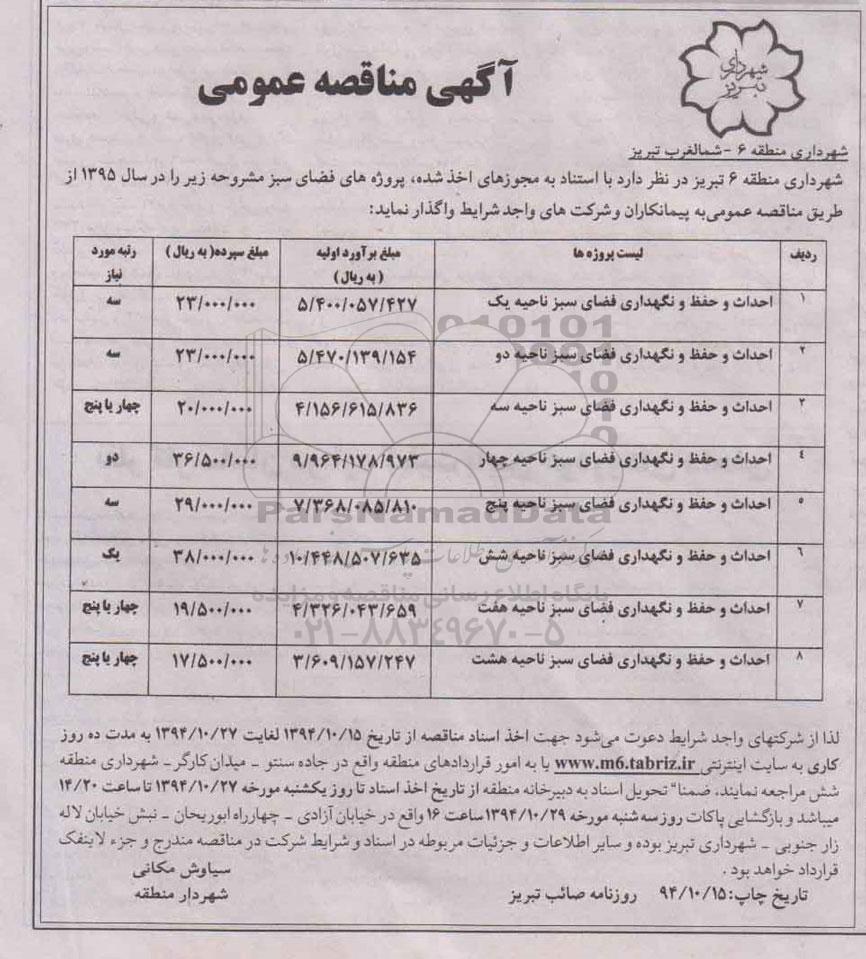 شهرداری
تبریز
آگهی مناقصه عمومی
شهرداری منطقه ۶ -شمالغرب تبریز
شهرداری منطقه ۶ تبریز در نظر دارد با استناد به مجوزهای اخذ شده، پروژه های فضای سبز مشروحه زیر را در سال ۱۳۹۵ از
طریق مناقصه عمومی‌به پیمانکاران وشرکت های واجد شرایط واگذار نماید:
ردیف لیست پروژه ها مبلغ برآورد اولیه (به ریال) مبلغ سپرده( به ریال ) رتبه مورد نیاز
۱ احداث و حفظ و نگهداری فضای سبز ناحیه یک ۵/۴۰۰/۰۵۷/۴۲۷ ۲۳/۰۰۰/۰۰۰ سه
۲ احداث و حفظ و نگهداری فضای سبز ناحیه دو ۵/۴۷۰/۱۳۹/۱۵۴ ۲۳/۰۰۰/۰۰۰ سه
۳ احداث و حفظ و نگهداری فضای سبز ناحیه سه ۴/۱۵۶/۶۱۵/۸۳۶ ۲۰/۰۰۰/۰۰۰ چهار یا پنج
۴ احداث و حفظ و نگهداری فضای سبز ناحیه چهار ۹/۹۶۴/۱۷۸/۹۷۳ ۳۶/۵۰۰/۰۰۰ دو
۵ احداث و حفظ و نگهداری فضای سبز ناحیه پنج ۷/۳۶۸/۰۸۵/۸۱۰ ۲۹/۰۰۰/۰۰۰ سه
۶ احداث و حفظ و نگهداری فضای سبز ناحیه شش ۱۰/۴۴۸/۵۰۷/۶۳۵ ۳۸/۰۰۰/۰۰۰ یک
۷ احداث و حفظ و نگهداری فضای سبز ناحیه هفت ۴/۳۲۶/۰۴۳/۶۵۹ ۱۹/۵۰۰/۰۰۰ چهار یا پنج
۸ احداث و حفظ و نگهداری فضای سبز ناحیه هشت ۳/۶۰۹/۱۵۷/۲۴۷ ۱۷/۵۰۰/۰۰۰ چهار یا پنج
ParsNamadData
پایگاه اطلاع رسانی مناقصه و مزایده
۰۲۱-۸۸۳۴۹۶۷۰-۵
لذا از شرکتهای واجد شرایط دعوت می‌شود جهت اخذ اسناد مناقصه از تاریخ ۱۳۹۴/۱۰/۱۵ لغایت ۱۳۹۴/۱۰/۲۷ به مدت ده روز
کاری به سایت اینترنتی www.m6.tabriz.ir یا به امور قراردادهای منطقه واقع در جاده سنتو - میدان کارگر - شهرداری منطقه
شش مراجعه نمایند، ضمنا" تحویل اسناد به دبیرخانه منطقه از تاریخ اخذ اسناد تا روز یکشنبه مورخه ۱۳۹۴/۱۰/۲۷ تا ساعت ۱۴/۲۰
میباشد و بازگشایی پاکات روز سه شنبه مورخه ۱۳۹۴/۱۰/۲۹ساعت ۱۶ واقع در خیابان آزادی - چهارراه ابوریحان - نبش خیابان لاله
زار جنوبی - شهرداری تبریز بوده و سایر اطلاعات و جزئیات مربوطه در اسناد و شرایط شرکت در مناقصه مندرج و جزء لاینفک
قرارداد خواهد بود .
سیاوش مکانی
شهردار منطقه
تاریخ چاپ: ۹۴/۱۰/۱۵ روزنامه صائب تبریز